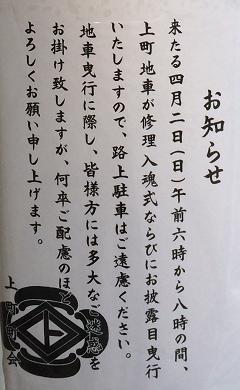 お知らせ
来たる四月二日(日)午前六時から八時の間、
上町地車が修理入魂式ならびにお披露目曳行
いたしますので、路上駐車はご遠慮ください。
地車曳行に際し、皆様方には多大なご迷惑を
お掛け致しますが、何卒ご配慮のほど
よろしくお願い申し上げます。
上町町会